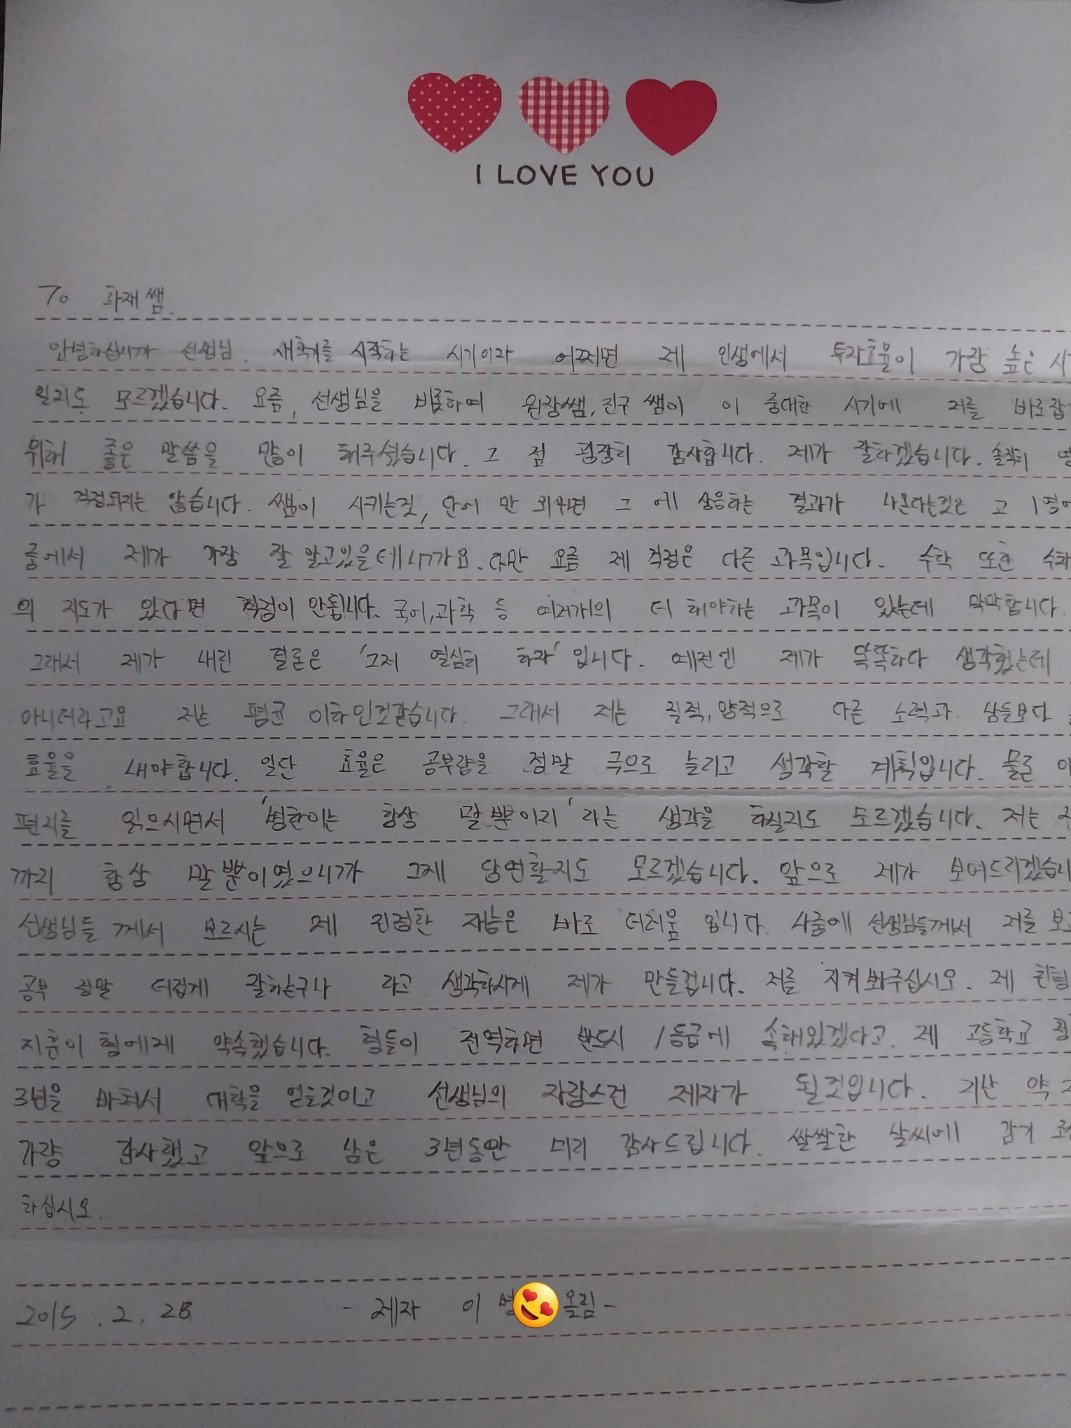 I LOVE YOU
To 화재쌤.
안녕하십니까 선생님. 새학기를 시작하는 시기이자 어쩌면 제 인생에서 투자효율이 가장 높은 시
일지도 모르겠습니다. 요즘, 선생님을 비롯하여 원장쌤, 진구쌤이 이 중대한 시기에 저를 바로잡
위해 좋은 말씀을 많이 해주셨습니다. 그 점 굉장히 감사합니다. 제가 잘하겠습니다. 솔직히 영
가 걱정되지는 않습니다. 쌤이 시키는것, 단어 만 외우면 그 에 상응하는 결과가 나온다는것은 고 1
중에서 제가 가장 잘 알고있을테니까요. 다만 요즘 제 걱정은 다른 과목입니다. 수학 또한 수학
의 지도가 있다면 걱정이 안됩니다. 국어, 과학 등 여러가지의 더 해야하는 과목이 있는데 막막합니다.
그래서 제가 내린 결론은 '그저 열심히 하자' 입니다. 예전엔 제가 똑똑하다 생각했는데
아니더라고요 저는 평균 이하인것같습니다. 그래서 저는 질적, 양적으로 다른 노력과 남들보다
효율을 내야합니다. 일단 효율은 공부량을 정말 극으로 늘리고 생각할 계획입니다. 물론 이
편지를 읽으시면서 '병찬이는 항상 말뿐이지' 라는 생각을 하실지도 모르겠습니다. 저는 지
까지 항상 말뿐이였으니까 그게 당연할지도 모르겠습니다. 앞으로 제가 보여드리겠습니
선생님들 께서 모르시는 제 진정한 재능은 바로 더러움 입니다. 나중에 선생님들께서 저를 보고
공부 정말 더럽게 잘하는구나 라고 생각하시게 제가 만들겁니다. 저를 지켜봐주십시오. 제 친형
지훈이 형에게 약속했습니다. 형들이 전역하면 반드시 1등급에 속해있겠다고. 제 고등학교
3년을 바쳐서 대학을 얻을것이고 선생님의 자랑스런 제자가 될것입니다. 지난 약
가량 감사했고 앞으로 남은 3년동안 미리 감사드립니다. 쌀쌀한 날씨에 감기 조심
하십시오.
2015. 2. 28 - 제자 이 올림-